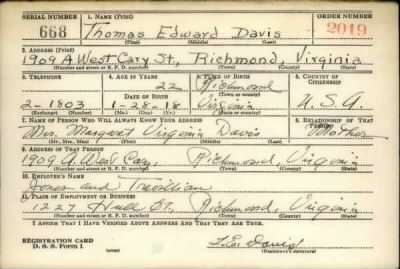 SERIAL NUMBER 1. NAME (Print) ORDER NUMBER
668 Thomas Edward Davis 2019
(First) (Middle) (Last)
2. ADDRESS (Print)
1909 A West Cary St., Richmond, Virginia
(Number and street or R. F. D. number) (Town) (County) (State)
3. TELEPHONE 4. AGE IN YEARS 5. PLACE OF BIRTH 6. COUNTRY OF CITIZENSHIP
22 Richmond
DATE OF BIRTH (Town or county)
2-1803 1-28-18 Virginia U.S.A.
7. NAME OF PERSON WHO WILL ALWAYS KNOW YOUR ADDRESS 8. RELATIONSHIP OF THAT PERSON
Mrs. Margaret Virginia Davis Mother
(Mr., Mrs., Miss) (First) (Middle) (Last)
9. ADDRESS OF THAT PERSON
1909 A. West Cary, Richmond, Virginia
(Number and street or R. F. D. number) (Town) (County) (State)
10. EMPLOYER'S NAME
Jones and
11. PLACE OF EMPLOYMENT OR BUSINESS
1227 Hull St. Richmond, Virginia
(Number and street or R. F. D. number) (Town) (County) (State)
I AFFIRM THAT I HAVE VERIFIED ABOVE ANSWERS AND THAT THEY ARE TRUE.
REGISTRATION CARD
D. S. S. Form 1 Davis
(Registrant's signature)